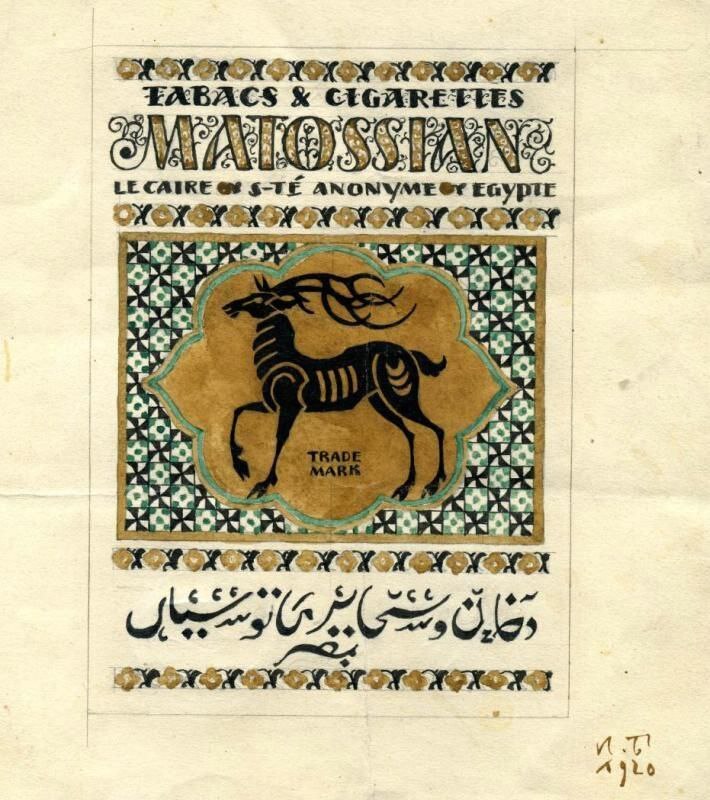 TABACS & CIGARETTES
MATOSSIAN
LE CAIRE S-TÉ ANONYME EGYPTE
TRADE
MARK
دخاين وسجاير ماتوسيان
بمصر
И.Б.
1920